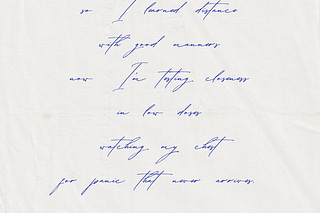 so I learned distance
with good manners
now I'm testing closeness
in low doses
watching my chest
for panic that never arrives.